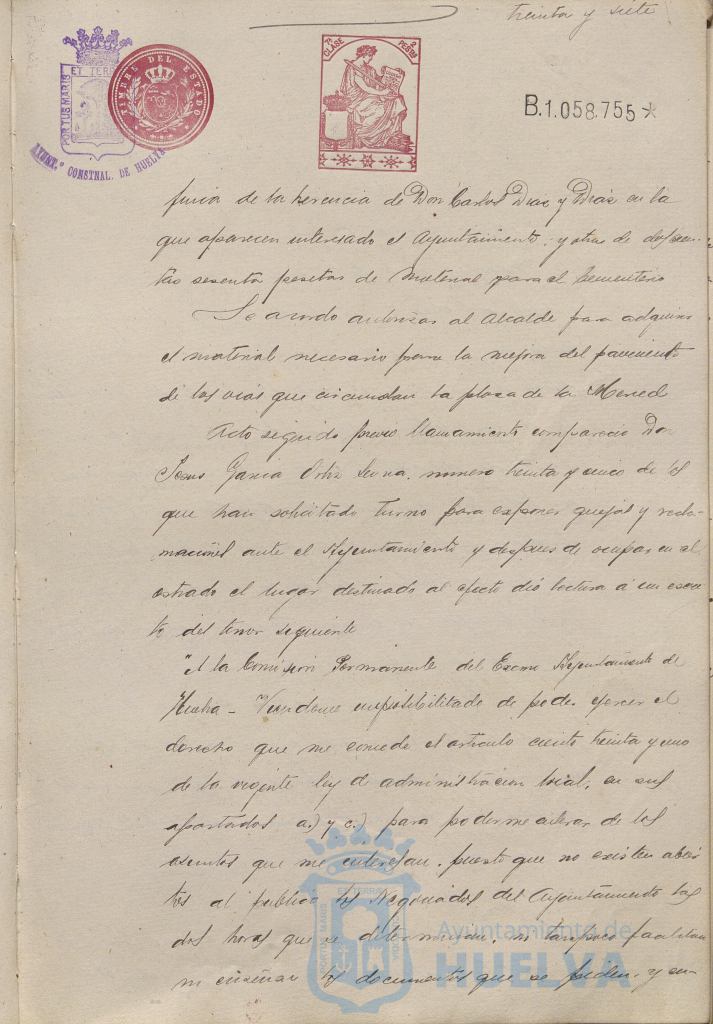 treinta y siete
ET TERRÆ
PORTUS MARIS
AYUNT.º CONSTNAL. DE HUELVA
TIMBRE DEL ESTADO
7ª CLASE
2 PESETAS
B.1.058.755*
de la herencia de Don Carlos Diaz y Diaz en la
que aparecen interesado el Ayuntamiento, y otra de doscien-
tas sesenta pesetas de material para el Cementerio
Se acordo autorizar al Alcalde para adquirir
el material necesario para la mejora del pavimento
de las vias que circundan la plaza de la Merced
Acto seguido previo llamamiento comparecio Dn
Jesus Garcia Ortiz numero treinta y cinco de los
que han solicitado turno para exponer quejas y recla-
maciones ante el Ayuntamiento y despues de ocupar en el
estrado el lugar destinado al efecto dió lectura á un escri-
to del tenor siguiente
"A la Comision Permanente del Excmo Ayuntamiento de
Huelva - Viendome imposibilitado de poder ejercer el
derecho que me concede el articulo ciento treinta y uno
de la vigente ley de administracion local, en sus
apartados a) y c.) para poderme enterar de los
asuntos que me interesan, puesto que no existen abier-
tos al publico los Negociados del Ayuntamiento las
dos horas que se determinan, ni tampoco facilitan
ni enseñan los documentos que se piden, y en-
Ayuntamiento de
HUELVA